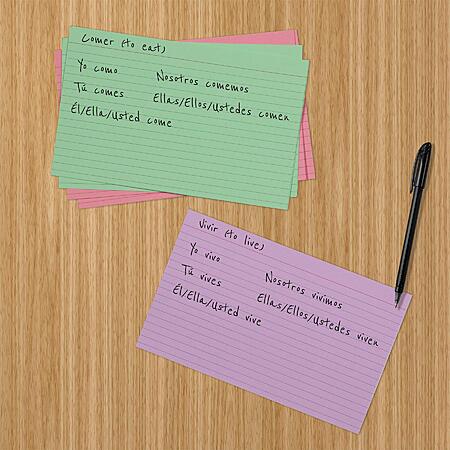 Comer (to eat)
Yo como
Tú comes
Él/Ella/Usted come
Nosotros comemos
Ellas/Ellos/Ustedes comen
Vivir (to live)
Yo vivo
Tú vives
Él/Ella/Usted vive
Nosotros vivimos
Ellas/Ellos/Ustedes viven